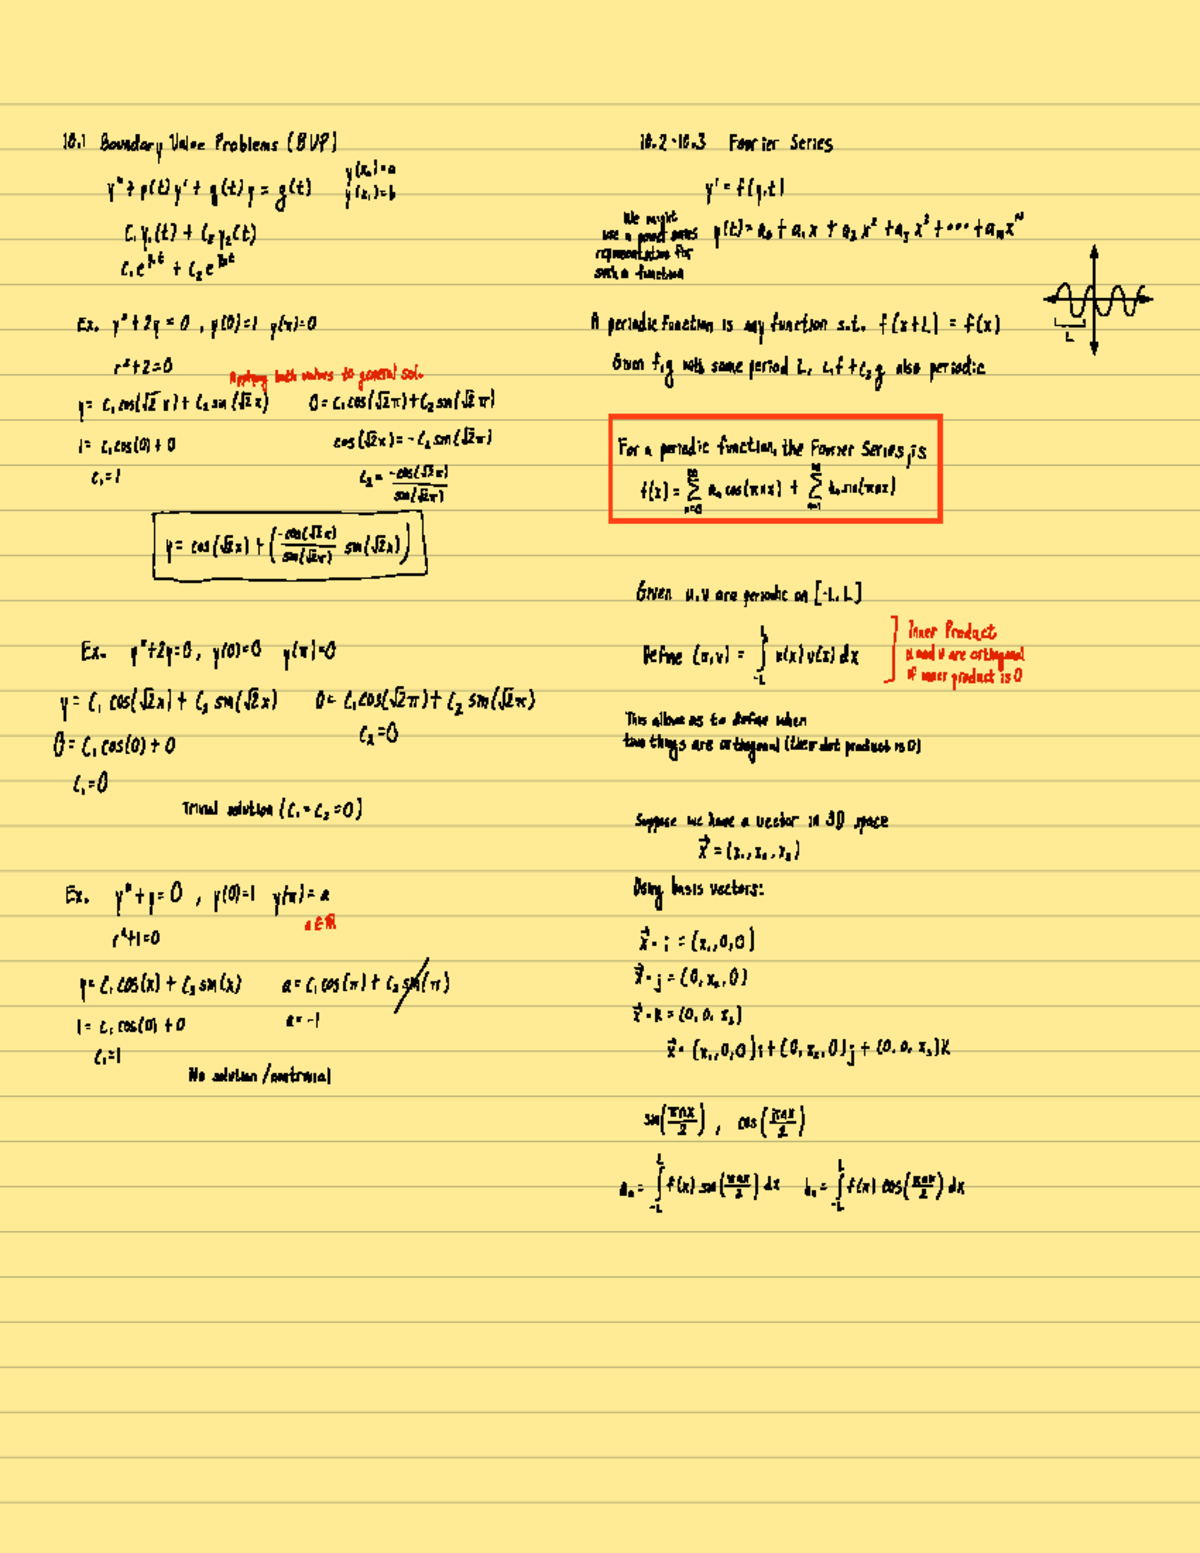 10.1 Boundary Value Problems (BVP)
y(x₀)=a
y" + p(t)y' + q(t)y = g(t)
y(x₁)=b
C₁y₁(t) + C₂y₂(t)
Ex. y"+2y=0, y(0)=1 y(π)=0
r²+2=0
Applying both values to general sol.
y= C₁cos(√2 x) + C₂sin(√2 x) 0= C₁cos(√2π)+C₂sin(√2π)
1= C₁cos(0) + 0 cos(√2x)= -C₂sin(√2π)
C₁=1 C₂= -cos(√2x)/sin(√2π)
y= cos(√2x) + (-cos(√2x)/sin(√2π) sin(√2x))
Ex. y"+2y=0, y(0)=0 y(π)=0
y= C₁ cos(√2x) + C₂ sin(√2x) 0= C₁cos(√2π) + C₂ sin(√2π)
0= C₁cos(0) + 0 C₂=0
C₁=0
Trivial solution (C₁=C₂=0)
Ex. y"+y=0, y(0)=1 y(π)=a
a∈ℝ
r²+1=0
y= C₁cos(x) + C₂sin(x) a= C₁cos(π) + C₂sin(π)
1= C₁cos(0) + 0 a=-1
C₁=1
No solution/nontrivial
10.2-10.3 Fourier Series
y' = f(y,t)
We might
use a power series
representation for
such a function
p(t)= a₀ + a₁x + a₂x² + a₃x³ + ... + aₙxᴺ
A periodic function is any function s.t. f(x+L) = f(x)
L
Given f,g with same period L, c₁f+c₂g also periodic
For a periodic function, the Fourier Series, is
f(x) = ∑ aₙ cos(πnx) + ∑ bₙ sin(πnx)
Given u,v are periodic on [-L, L]
Define (u,v) = ∫_{-L}^{L} u(x)v(x)dx
Inner Product
u and v are orthogonal
if inner product is 0
This allows us to define when
two things are orthogonal (their dot product is 0)
Suppose we have a vector in 3D space
x⃗ = (x₁, x₂, x₃)
Using basis vectors:
x⃗·i = (x₁,0,0)
x⃗·j = (0,x₂,0)
x⃗·k = (0,0,x₃)
x⃗= (x₁,0,0)i + (0,x₂,0)j + (0,0,x₃)k
sin(πnx/2), cos(πnx/2)
aₙ= ∫_{-L}^{L} f(x) sin(πnx/2) dx bₙ= ∫_{-L}^{L} f(x) cos(πnx/2) dx